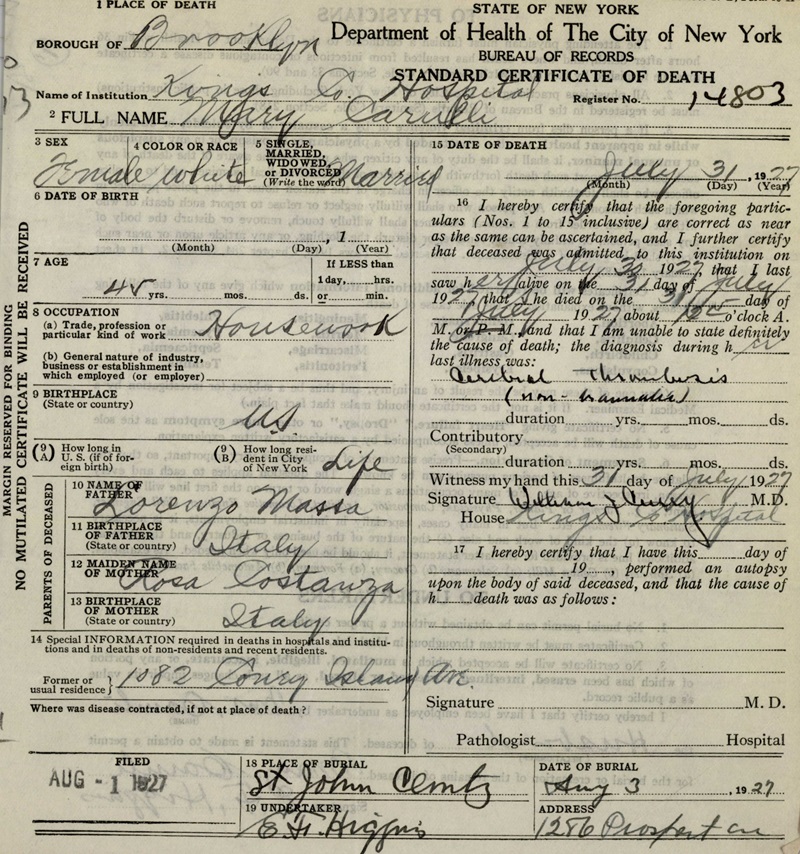 1 PLACE OF DEATH
STATE OF NEW YORK
BOROUGH OF Brooklyn
Department of Health of The City of New York
BUREAU OF RECORDS
STANDARD CERTIFICATE OF DEATH
Name of Institution Kings Co. Hospital
Register No. 14803
2 FULL NAME Mary Carulli
3 SEX Female
4 COLOR OR RACE White
5 SINGLE, MARRIED, WIDOWED, OR DIVORCED (Write the word) Married
6 DATE OF BIRTH
, 1
(Month) (Day) (Year)
7 AGE
45 yrs. mos. ds.
If LESS than
1 day, hrs.
or min.
8 OCCUPATION
(a) Trade, profession or
particular kind of work Housework
(b) General nature of industry,
business or establishment in
which employed (or employer)
9 BIRTHPLACE
(State or country)
U.S.
(9 A) How long in
U. S. (if of for-
eign birth)
(9 B) How long resi-
dent in City
of New York Life
PARENTS OF DECEASED
10 NAME OF
FATHER Lorenzo Massa
11 BIRTHPLACE
OF FATHER
(State or country) Italy
12 MAIDEN NAME
OF MOTHER Rosa Costanza
13 BIRTHPLACE
OF MOTHER
(State or country) Italy
14 Special INFORMATION required in deaths in hospitals and institu-
tions and in deaths of non-residents and recent residents.
Former or
usual residence } 1082 Coney Island Ave
Where was disease contracted, if not at place of death?
15 DATE OF DEATH
July 31, 1927
(Month) (Day) (Year)
16 I hereby certify that the foregoing partic-
ulars (Nos. 1 to 15 inclusive) are correct as near
as the same can be ascertained, and I further certify
that deceased was admitted to this institution on
July 1927, that I last
saw her alive on the 31 day of July
1927, that she died on the 31 day of
July 1927 about o'clock A.
M. or P. M., and that I am unable to state definitely
the cause of death; the diagnosis during her
last illness was:
Cerebral Thrombosis
(non-traumatic)
duration yrs. mos. ds.
Contributory
(Secondary)
duration yrs. mos. ds.
Witness my hand this 31 day of July 1927
Signature William J. M.D.
House Kings Co Hospital
17 I hereby certify that I have this day of
19 , performed an autopsy
upon the body of said deceased, and that the cause of
h death was as follows:
Signature M. D.
Pathologist Hospital
FILED
AUG - 1 1927
18 PLACE OF BURIAL
St John Cemty
DATE OF BURIAL
Aug 3, 1927
19 UNDERTAKER
E. F. Higgins
ADDRESS
1286 Prospect av
MARGIN RESERVED FOR BINDING
NO MUTILATED CERTIFICATE WILL BE RECEIVED